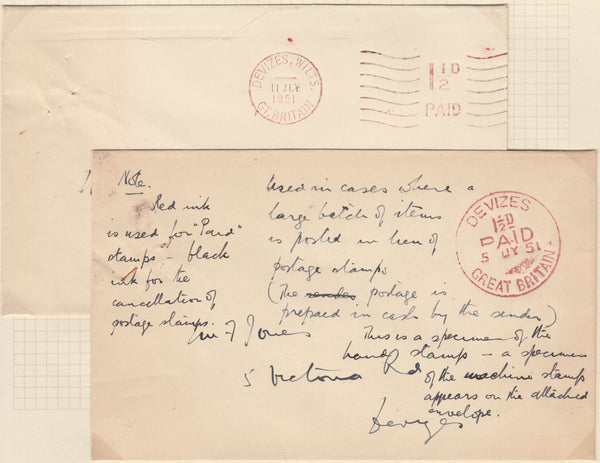 DEVIZES, WILTS.
11 JLY
1951
GT. BRITAIN
1 1/2 D
PAID
Note.
Red ink
is used for "Paid"
stamps - black
ink for the
cancellation of
postage stamps.
Used in cases where a
large batch of items
is posted in lieu of
postage stamps
(The sender postage is
prepaid in cash by the sender)
This is a specimen of the
hand stamp - a specimen
of the machine stamps
appears on the attached
envelope.
DEVIZES
1 1/2 D
PAID
5 JY 51
GREAT BRITAIN
Jones
5 Victoria Rd
Devizes